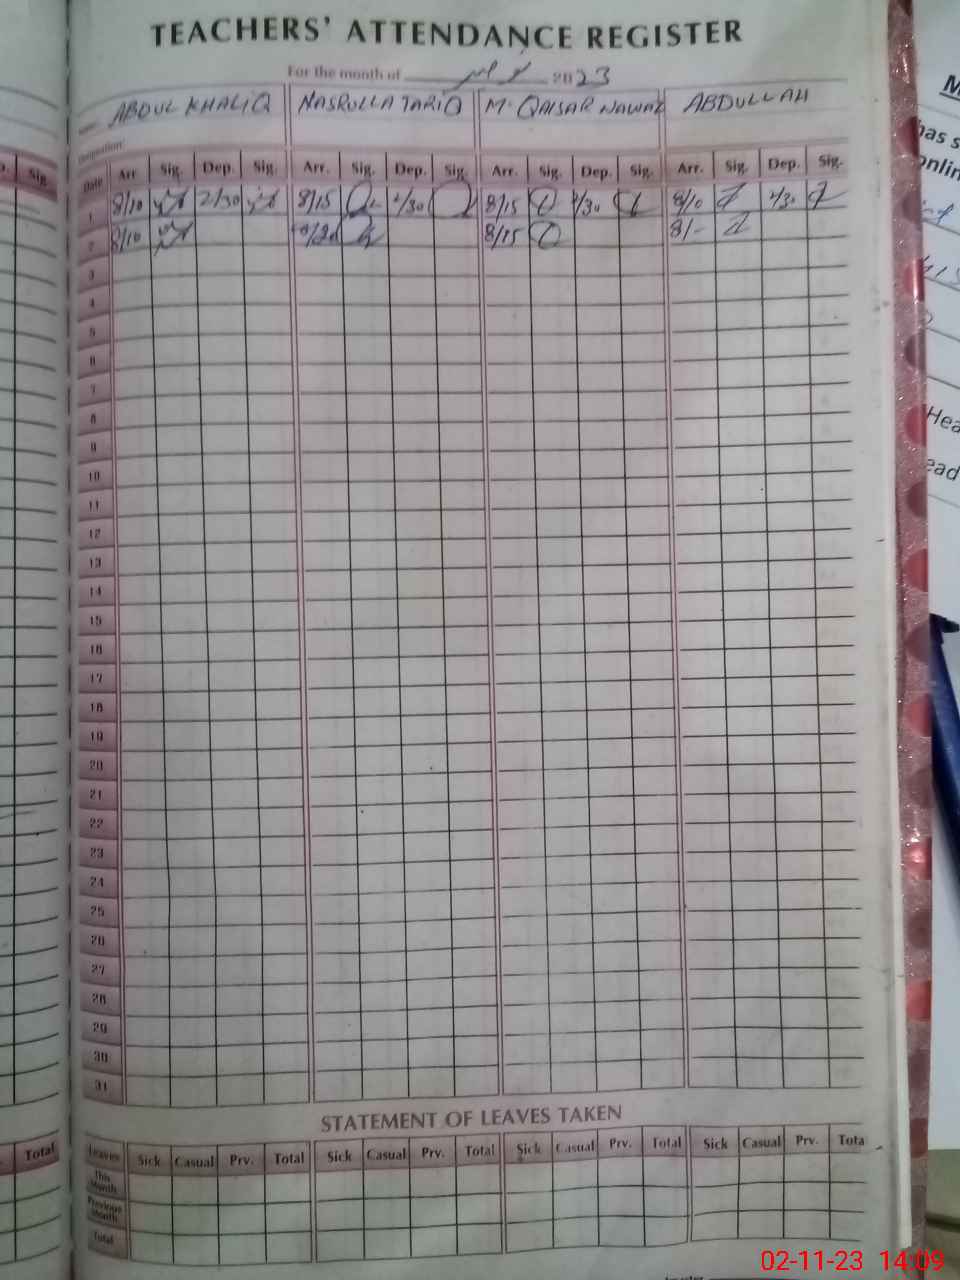 TEACHERS' ATTENDANCE REGISTER
For the month of 2023
Name ABDUL KHALIQ NASRULLA TARIQ M. QAISAR NAWAZ ABDULLAH
Designation
Date Arr. Sig. Dep. Sig. Arr. Sig. Dep. Sig. Arr. Sig. Dep. Sig. Arr. Sig. Dep. Sig.
1 8/10 2/30 8/15 2/30 8/15 2/30 8/10 2/30
2 8/10 8/20 8/15 8/-
3
4
5
6
7
8
9
10
11
12
13
14
15
16
17
18
19
20
21
22
23
24
25
26
27
28
29
30
31
STATEMENT OF LEAVES TAKEN
Leaves Sick Casual Prv. Total Sick Casual Prv. Total Sick Casual Prv. Total Sick Casual Prv. Tota
This Month
Previous Month
Total
Sig.
Total
has s
onlin
Hea
ead
02-11-23 14:09